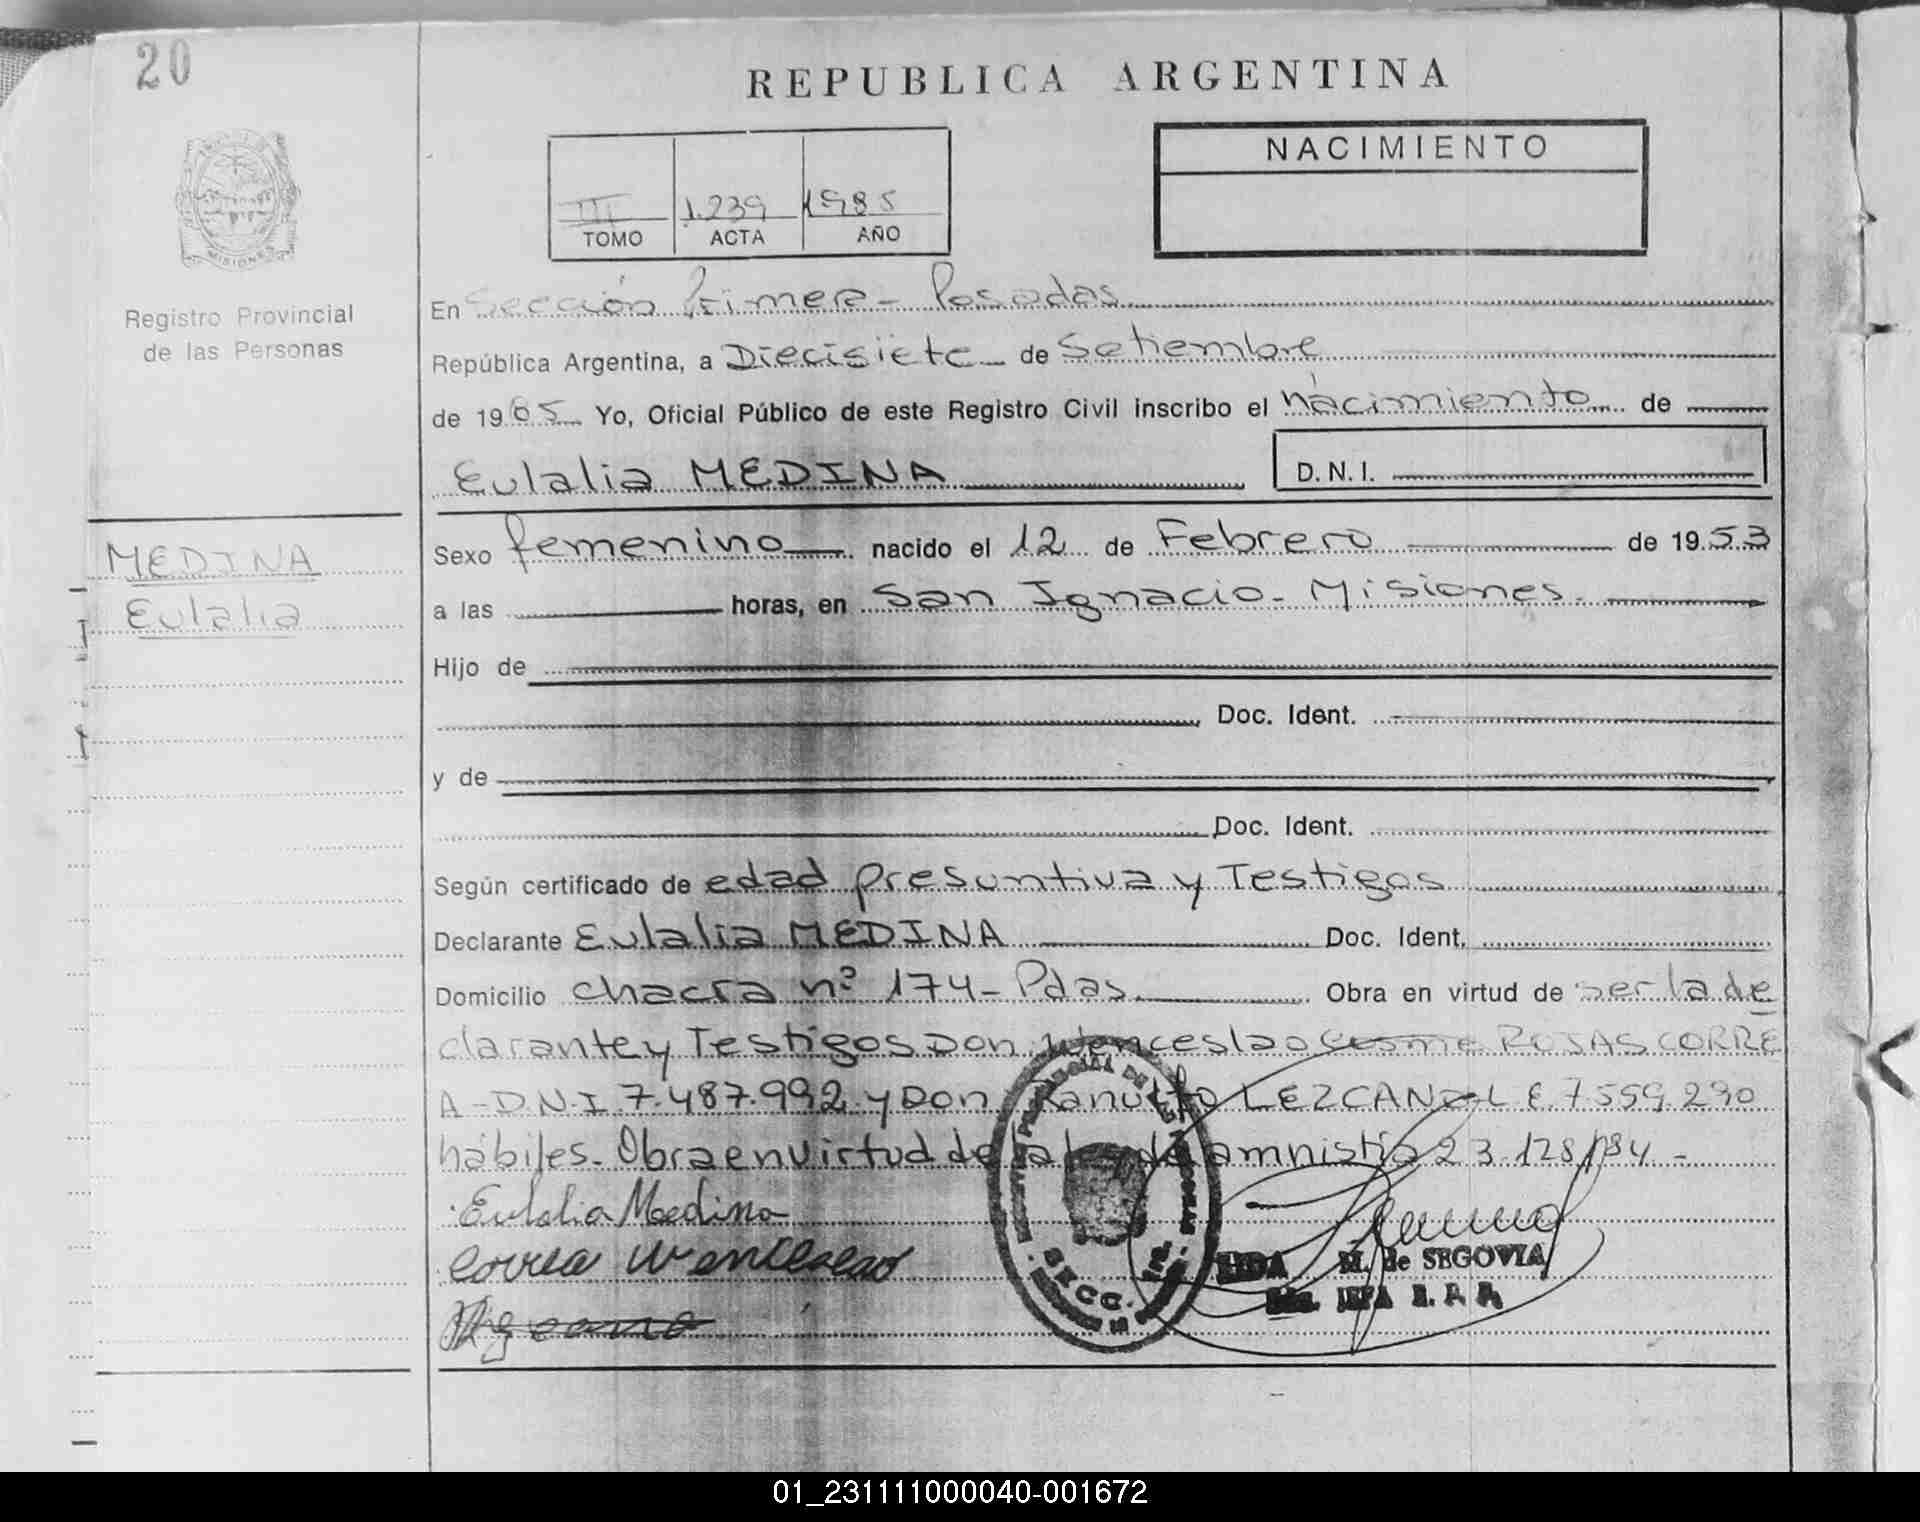 20
REPUBLICA ARGENTINA
NACIMIENTO
III 1.239 1985
TOMO ACTA AÑO
MISIONES
Registro Provincial
de las Personas
En Sección Primera - Posadas
República Argentina, a Diecisiete de Setiembre
de 1985 Yo, Oficial Público de este Registro Civil inscribo el nacimiento de
Eulalia MEDINA D.N.I.
MEDINA
Eulalia
Sexo femenino nacido el 12 de Febrero de 1953
a las horas, en San Ignacio - Misiones.
Hijo de
Doc. Ident.
y de
Doc. Ident.
Según certificado de edad presuntiva y Testigos
Declarante Eulalia MEDINA Doc. Ident.
Domicilio chacra nº 174 - Pdas. Obra en virtud de ser la de
clarante y Testigos Don Wenceslao Cosme ROJAS CORRE
A - D.N.I 7.487.992 y Don Ranulfo LEZCANO L E. 7 559 290
hábiles. Obra en virtud de la ley de amnistía 23.128/84 -
Eulalia Medina
Correa Wenceslao
M. de SEGOVIA
JEFA R. P. P.
SECC.
01_231111000040-001672